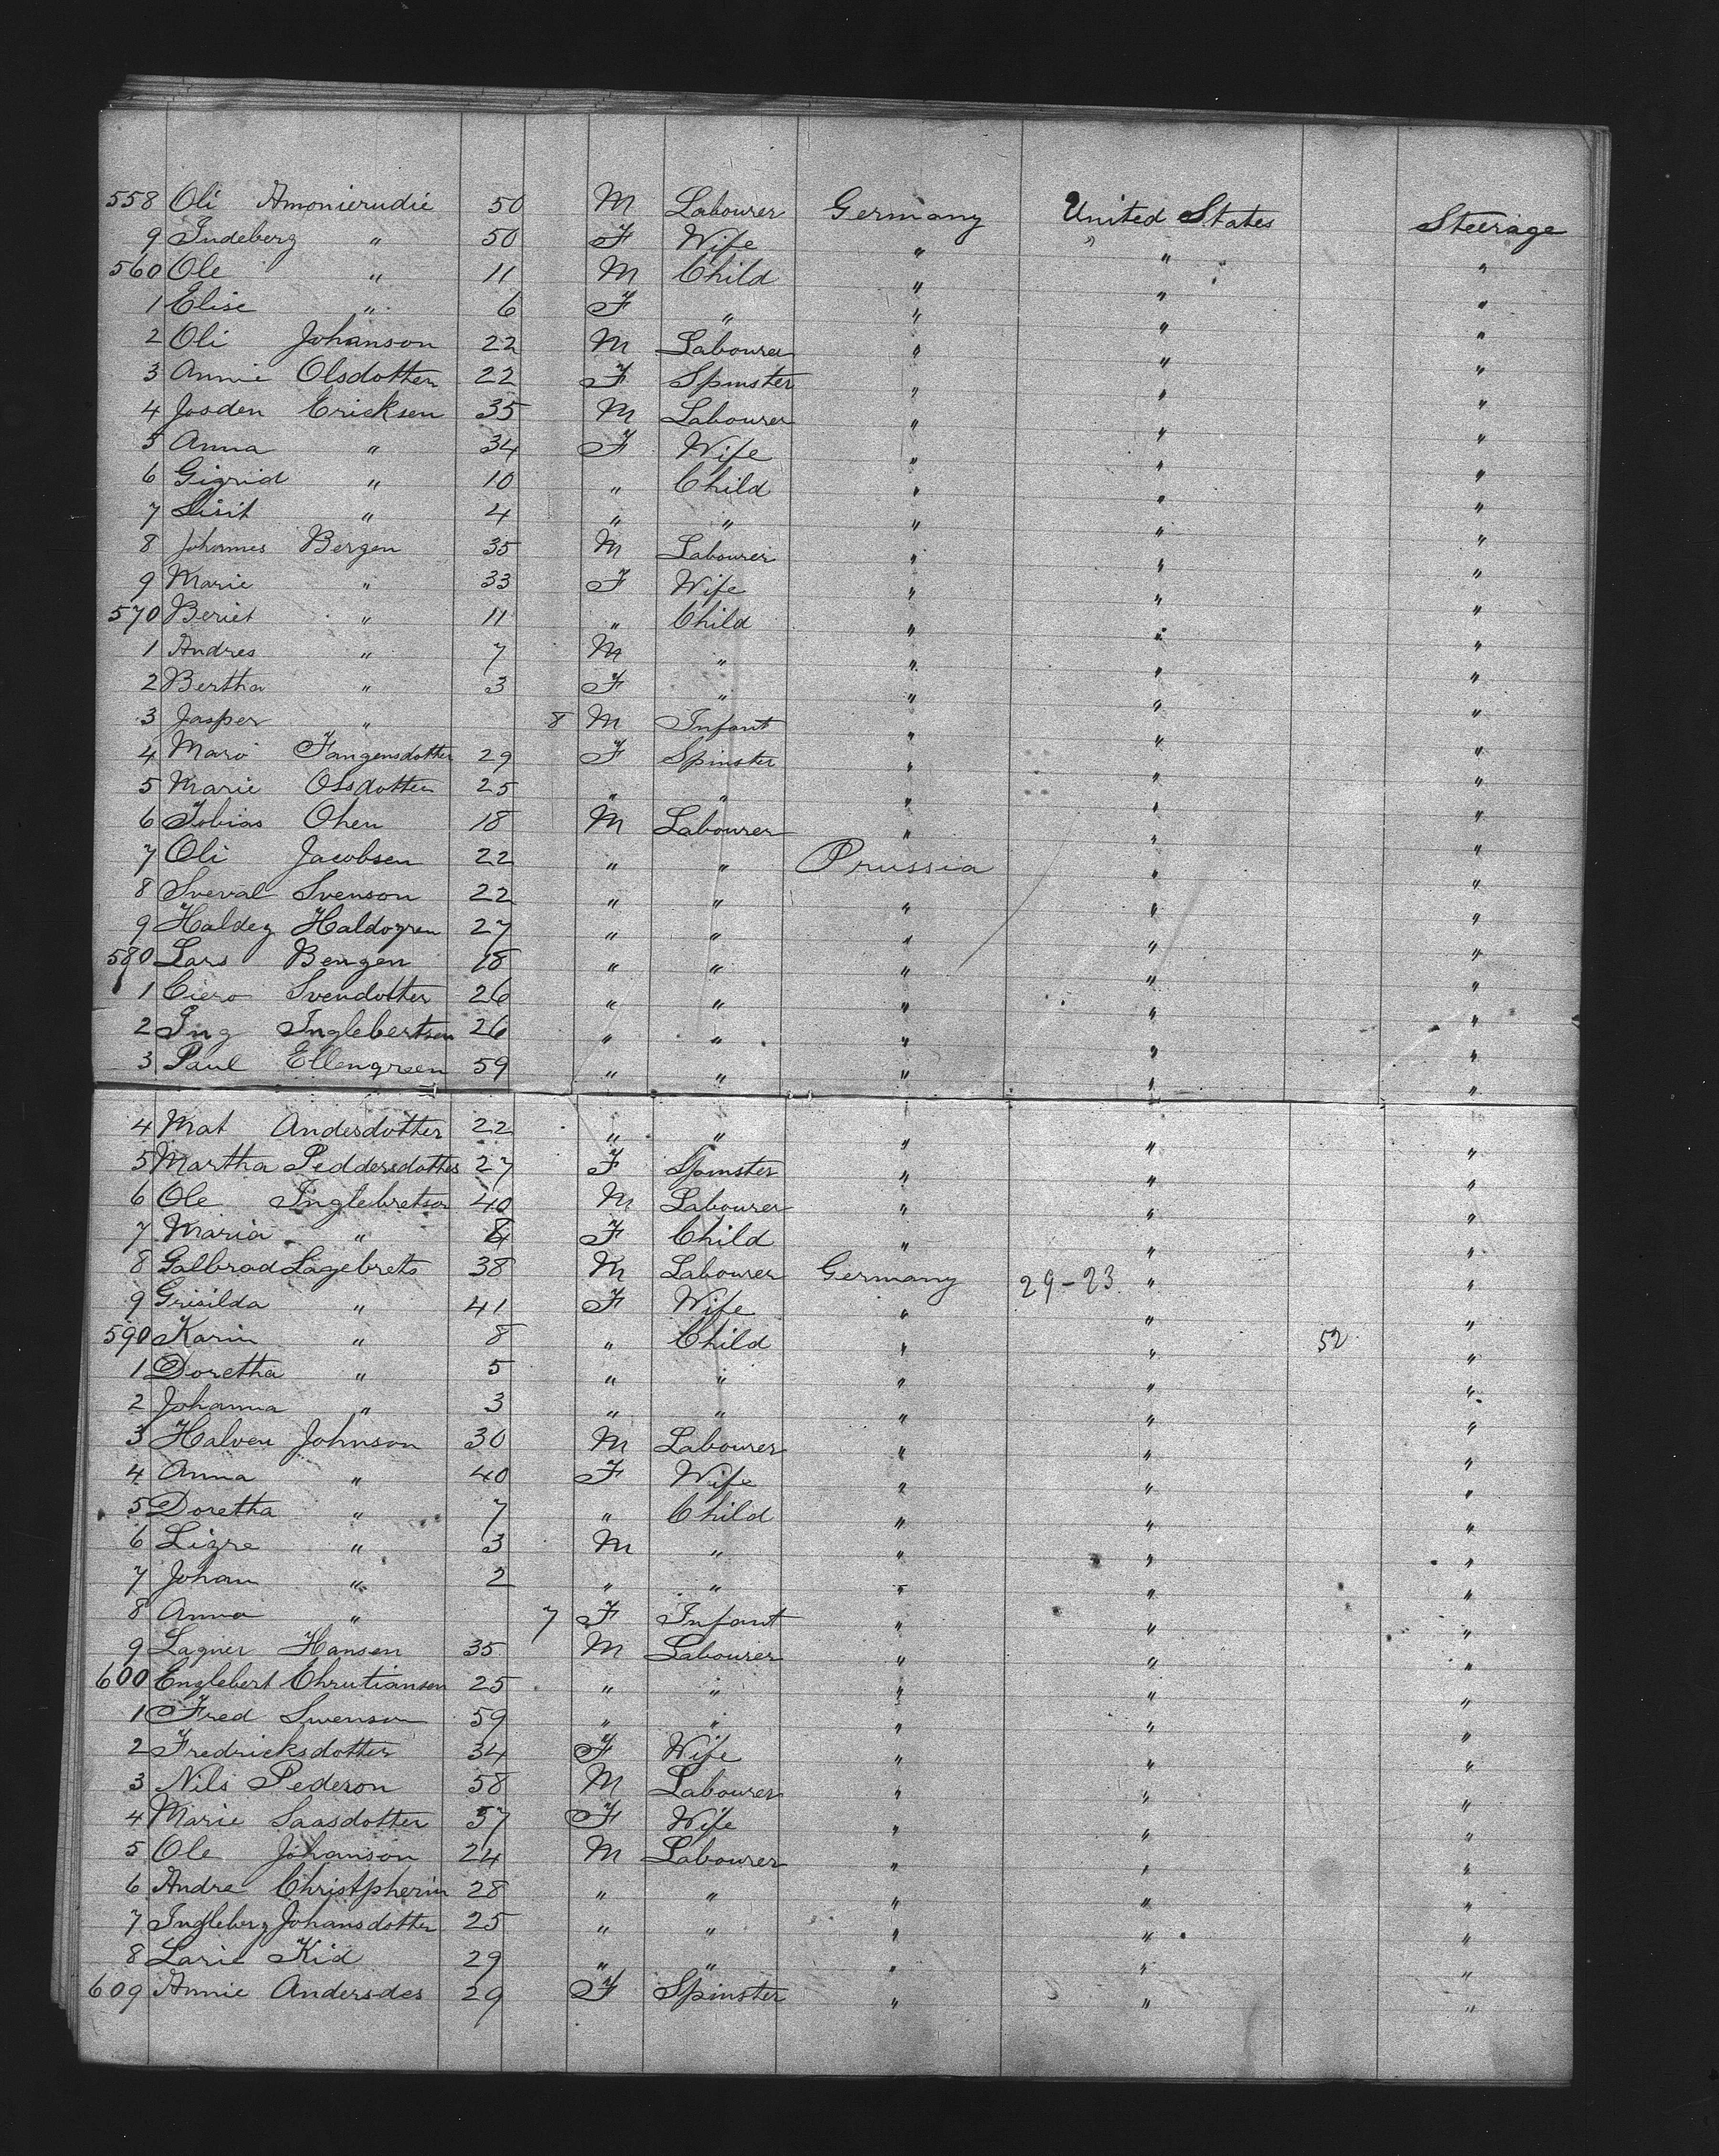 558 Oli Amonierudie 50 M Labourer Germany United States Steerage
9 Indeberg " 50 F Wife " " "
560 Ole " 11 M Child " " "
1 Elise " 6 F " " " "
2 Oli Johanson 22 M Labourer " " "
3 Annie Olsdotter 22 F Spinster " " "
4 Josden Ericksen 35 M Labourer " " "
5 Anna " 34 F Wife " " "
6 Gigrid " 10 " Child " " "
7 Lisit " 4 " " " " "
8 Johannes Bergen 35 M Labourer " " "
9 Marie " 33 F Wife " " "
570 Beriet " 11 " Child " " "
1 Andres " 7 M " " " "
2 Bertha " 3 F " " " "
3 Jasper " 8 M Infant " " "
4 Maro Fangensdotter 29 F Spinster " " "
5 Marie Olsdotter 25 " " " " "
6 Tobias Ohen 18 M Labourer " " "
7 Oli Jacobsen 22 " " Prussia " "
8 Sveval Svenson 22 " " " " "
9 Haldez Haldozren 27 " " " " "
580 Lars Bengen 18 " " " " "
1 Ciero Svendotter 26 " " " " "
2 Ing Inglebertsen 26 " " " " "
3 Paul Ellengreen 59 " " " " "
4 Mat Andesdotter 22 " " " " "
5 Martha Peddersdotter 27 F Spinster " " "
6 Ole Inglebretson 40 M Labourer " " "
7 Maria " F Child " " "
8 Galbrad Lagebrets 38 M Labourer Germany 29-23 " "
9 Grisilda " 41 F Wife " " "
590 Karin " 8 " Child " " 52 "
1 Doretha " 5 " " " " "
2 Johanna " 3 " " " " "
3 Halven Johnson 30 M Labourer " " "
4 Anna " 40 F Wife " " "
5 Doretha " 7 " Child " " "
6 Lizre " 3 M " " " "
7 Johan " 2 " " " " "
8 Anna " 7 F Infant " " "
9 Lagner Hansen 35 M Labourer " " "
600 Englebert Chrutiansen 25 " " " " "
1 Fred Swenson 59 " " " " "
2 Fredricksdotter 34 F Wife " " "
3 Nils Pederon 58 M Labourer " " "
4 Marie Saasdotter 57 F Wife " " "
5 Ole Johanson 24 M Labourer " " "
6 Andre Christpherin 28 " " " " "
7 Ingleberg Johansdotter 25 " " " " "
8 Larie Kid 29 " " " " "
609 Annie Andersdes 29 F Spinster " " "